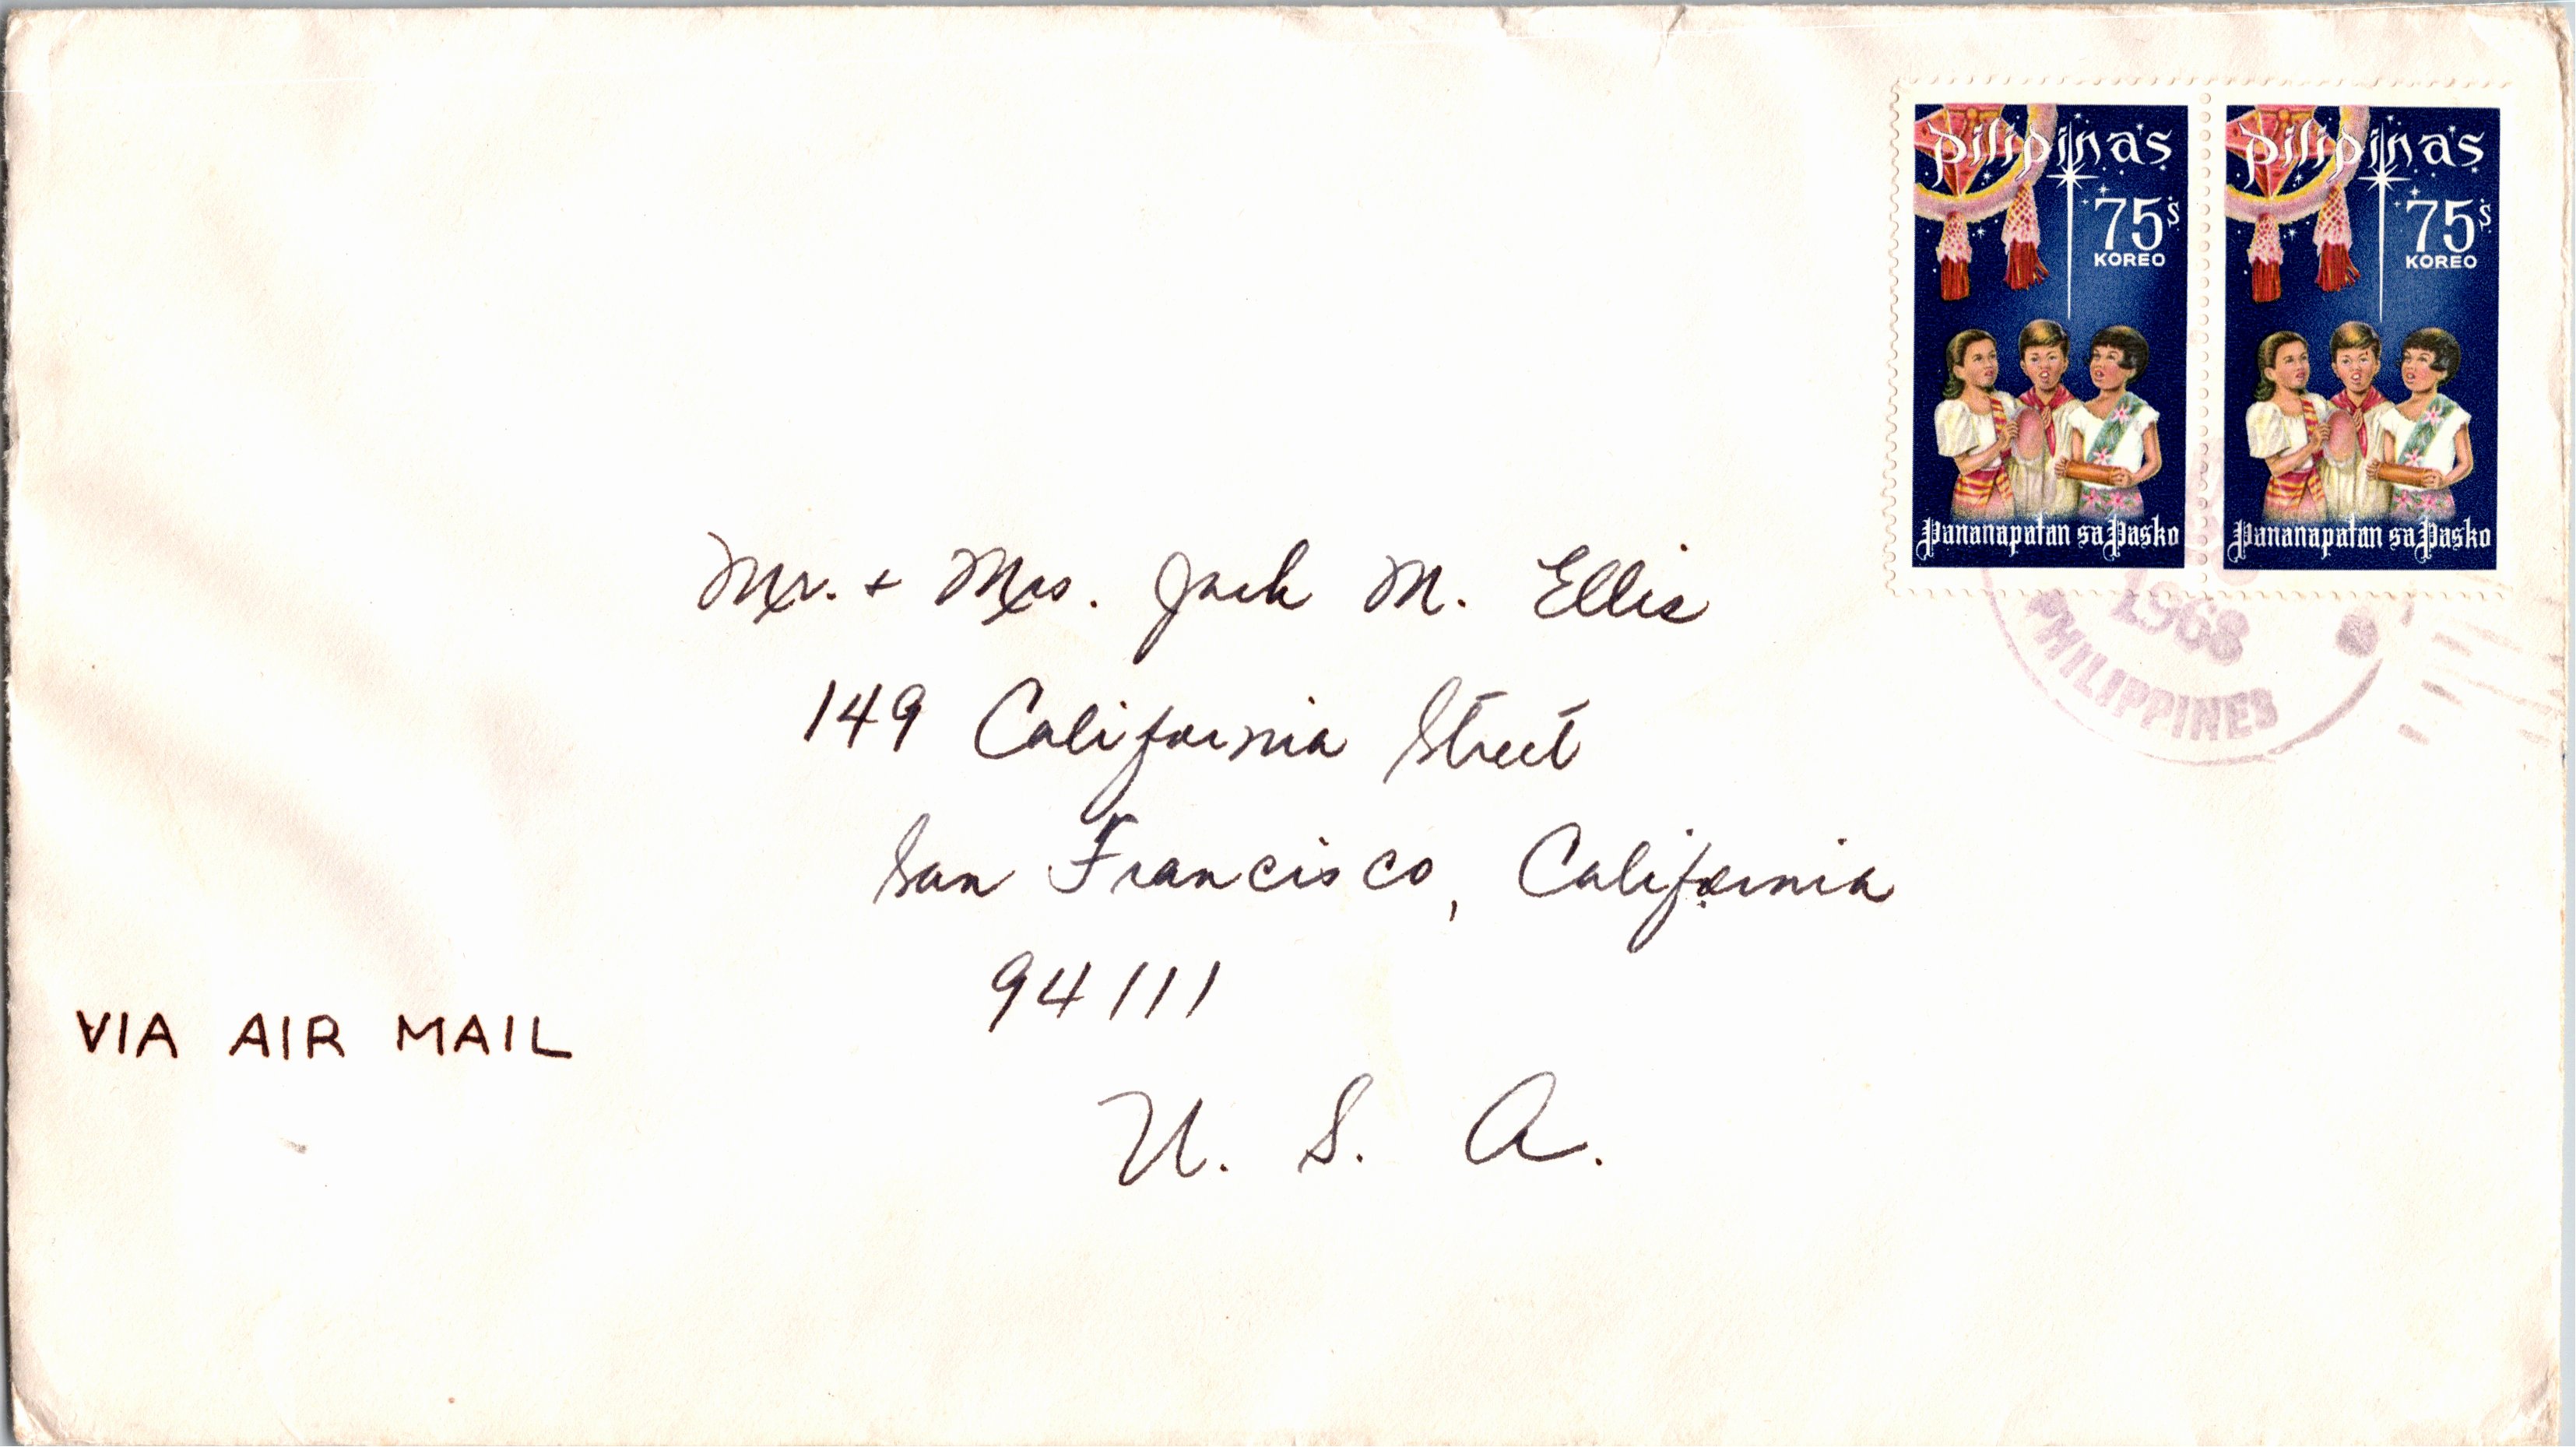 pilipinas
75s
KOREO
Pananapatan sa Pasko
pilipinas
75s
KOREO
Pananapatan sa Pasko
1968
PHILIPPINES
Mr. + Mrs. Jack M. Ellis
149 California Street
San Francisco, California
94111
U. S. A.
VIA AIR MAIL